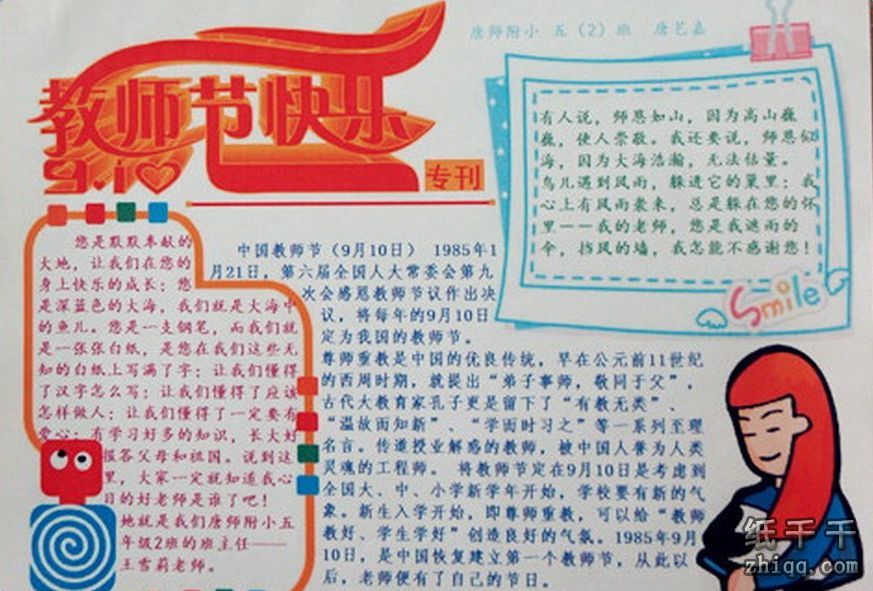 唐师附小 五（2）班 唐艺嘉
教师节快乐
9.10
专刊
有人说，师恩如山，因为高山巍
巍，使人崇敬。我还要说，师恩似
海，因为大海浩瀚，无法估量。
鸟儿遇到风雨，躲进它的巢里；我
心上有风雨袭来，总是躲在您的怀
里——我的老师，您是我遮雨的
伞，挡风的墙，我怎能不感谢您！
Smile
您是默默奉献的
大地，让我们在您的
身上快乐的成长；您
是深蓝色的大海，我们就是大海中
的鱼儿。您是一支钢笔，而我们就
是一张张白纸，是您在我们这些无
知的白纸上写满了字；让我们懂得
了汉字怎么写；让我们懂得了应该
怎样做人；让我们懂得了一定要有
爱心；有学习好多的知识，长大好
报答父母和祖国。说到这
里，大家一定就知道我心
目的好老师是谁了吧！
她就是我们唐师附小五
年级2班的班主任——
王雪莉老师。
中国教师节（9月10日） 1985年1
月21日，第六届全国人大常委会第九
次会感恩教师节议作出决
议，将每年的9月10日
定为我国的教师节。
尊师重教是中国的优良传统，早在公元前11世纪
的西周时期，就提出“弟子事师，敬同于父”，
古代大教育家孔子更是留下了“有教无类”、
“温故而知新”、“学而时习之”等一系列至理
名言。传道授业解惑的教师，被中国人誉为人类
灵魂的工程师。 将教师节定在9月10日是考虑到
全国大、中、小学新学年开始，学校要有新的气
象。新生入学开始，即尊师重教，可以给“教师
教好、学生学好”创造良好的气氛。1985年9月
10日，是中国恢复建立第一个教师节，从此以
后，老师便有了自己的节日。
纸千千
zhiqq.com